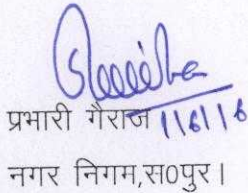 प्रभारी गैराज 11/6/16
नगर निगम,स0पुर।